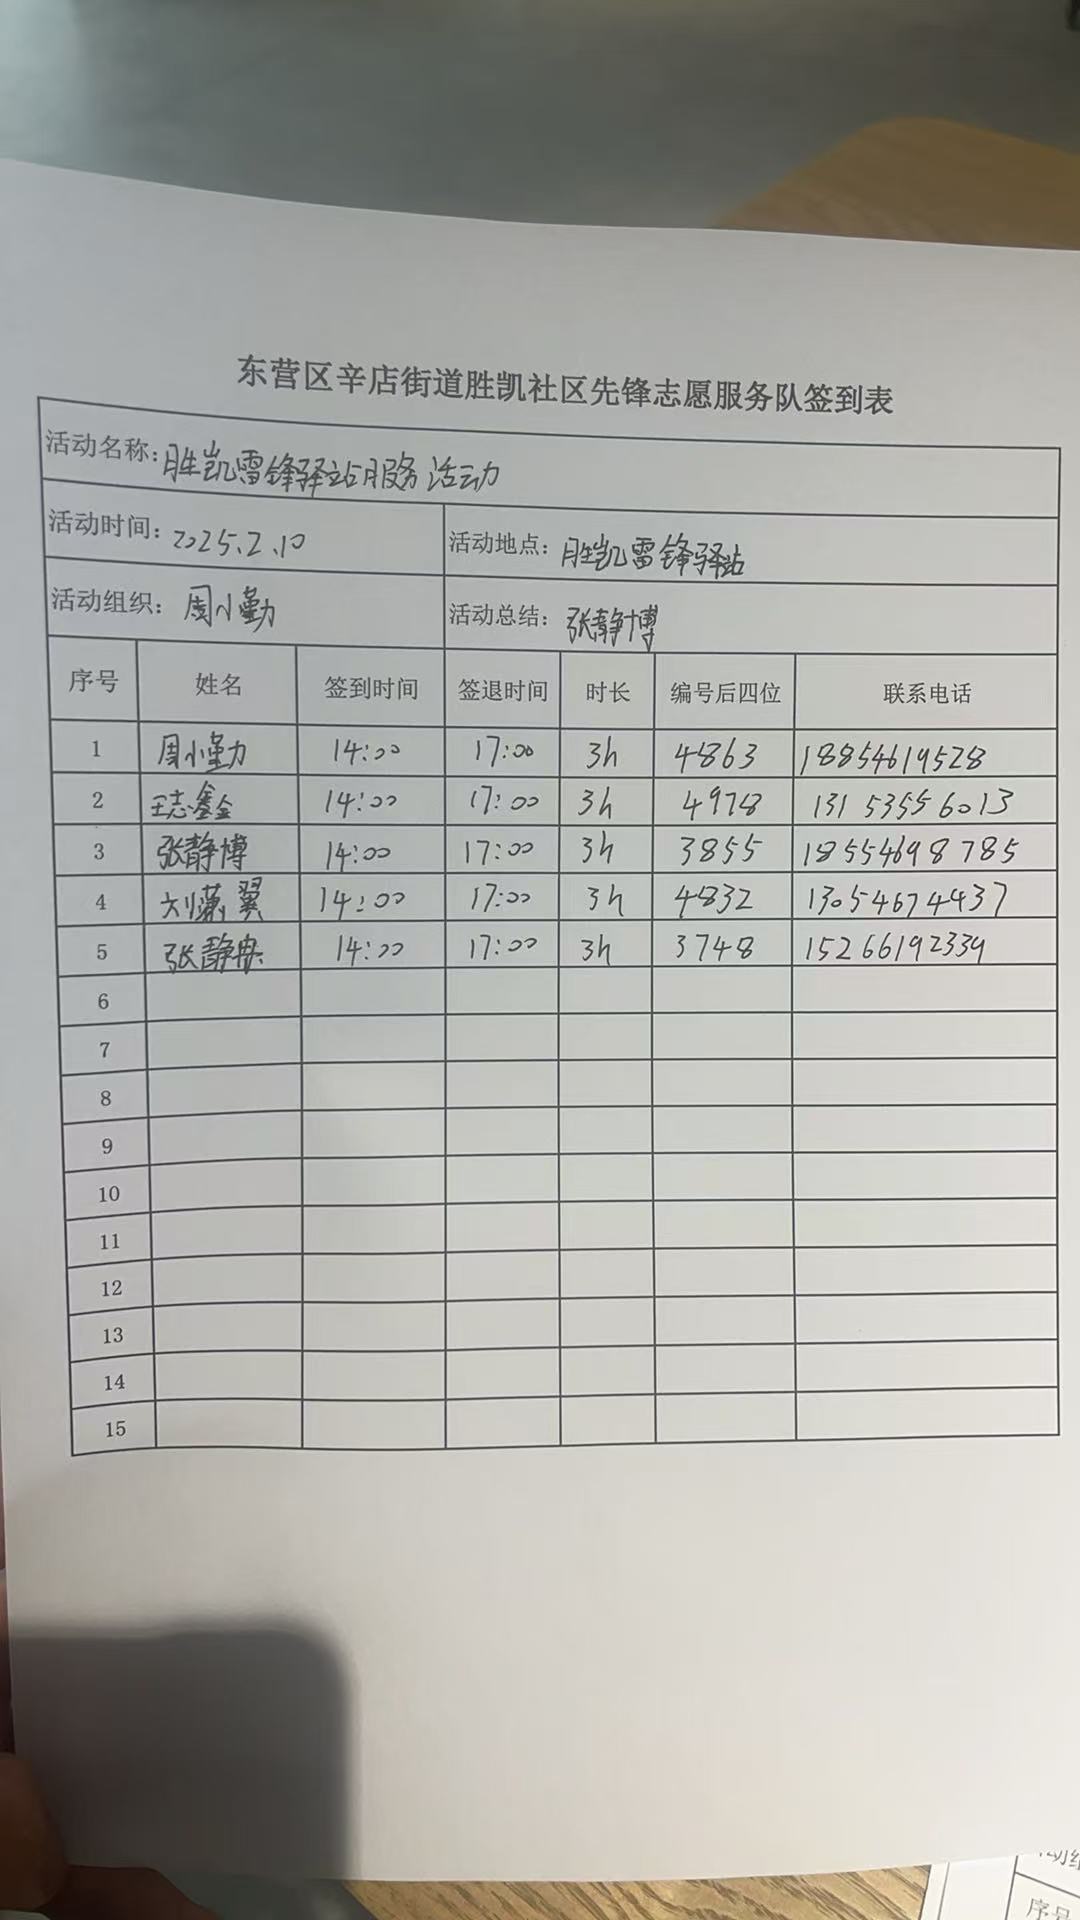 东营区辛店街道胜凯社区先锋志愿服务队签到表
活动名称：胜凯雷锋驿站服务活动
活动时间：2025.2.10 活动地点：胜凯雷锋驿站
活动组织：周小勤 活动总结：张静博
序号 姓名 签到时间 签退时间 时长 编号后四位 联系电话
1 周小勤 14:00 17:00 3h 4863 18854619528
2 王志鑫 14:00 17:00 3h 4978 13153556013
3 张静博 14:00 17:00 3h 3855 18554698785
4 刘潇翼 14:00 17:00 3h 4832 13054674437
5 张静冉 14:00 17:00 3h 3748 15266192339
6
7
8
9
10
11
12
13
14
15
序号